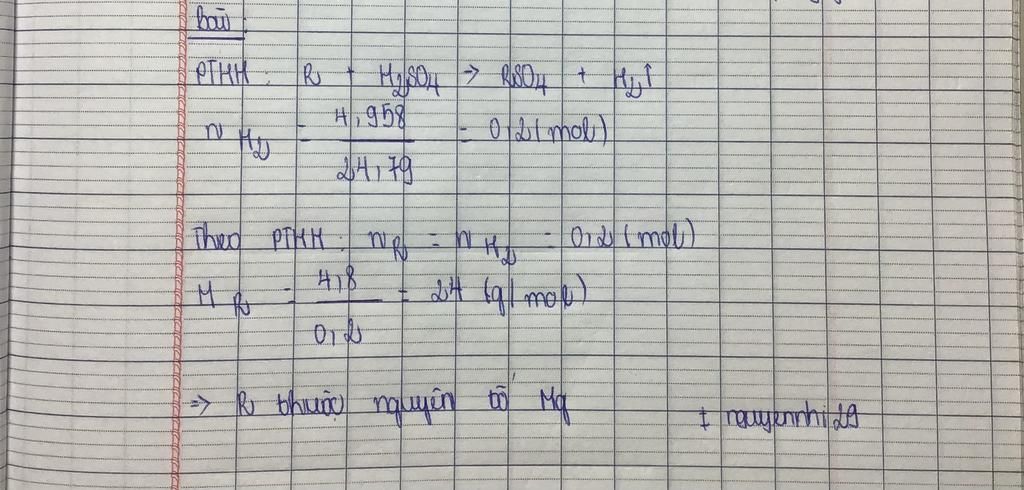 Bài
PTHH : R + H2SO4 → RSO4 + H2↑
n H2 = 4,958 / 24,79 = 0,2 (mol)
Theo PTHH : nR = nH2 = 0,2 (mol)
MR = 4,8 / 0,2 = 24 (g/mol)
=> R thuộc nguyên tố Mg
nguyennhi29